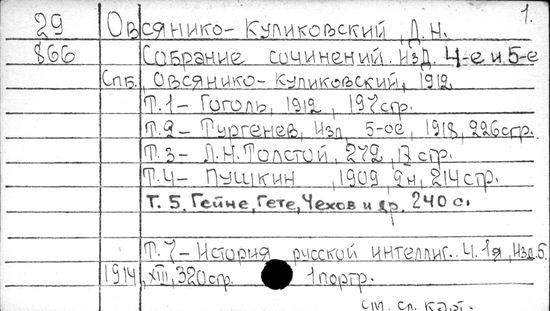 1.
29 Овсянико-Куликовский, Д.Н.
866 Собрание сочинений. Изд. 4-е и 5-е
Спб., Овсянико-Куликовский, 1912
Т.1- Гоголь, 1912, 197стр.
Т.2- Тургенев, Изд. 5-ое, 1918, 226стр.
Т.3- Л.Н.Толстой, 292, 17 стр.
Т.4- Пушкин, 1909, 2н, 214стр.
Т. 5. Гейне, Гете, Чехов и др. 240 с.
Т.7- История русской интеллиг. Ч.1я, Изд.5.
1914, XIII, 320стр. 1портр.
см. сл. карт.